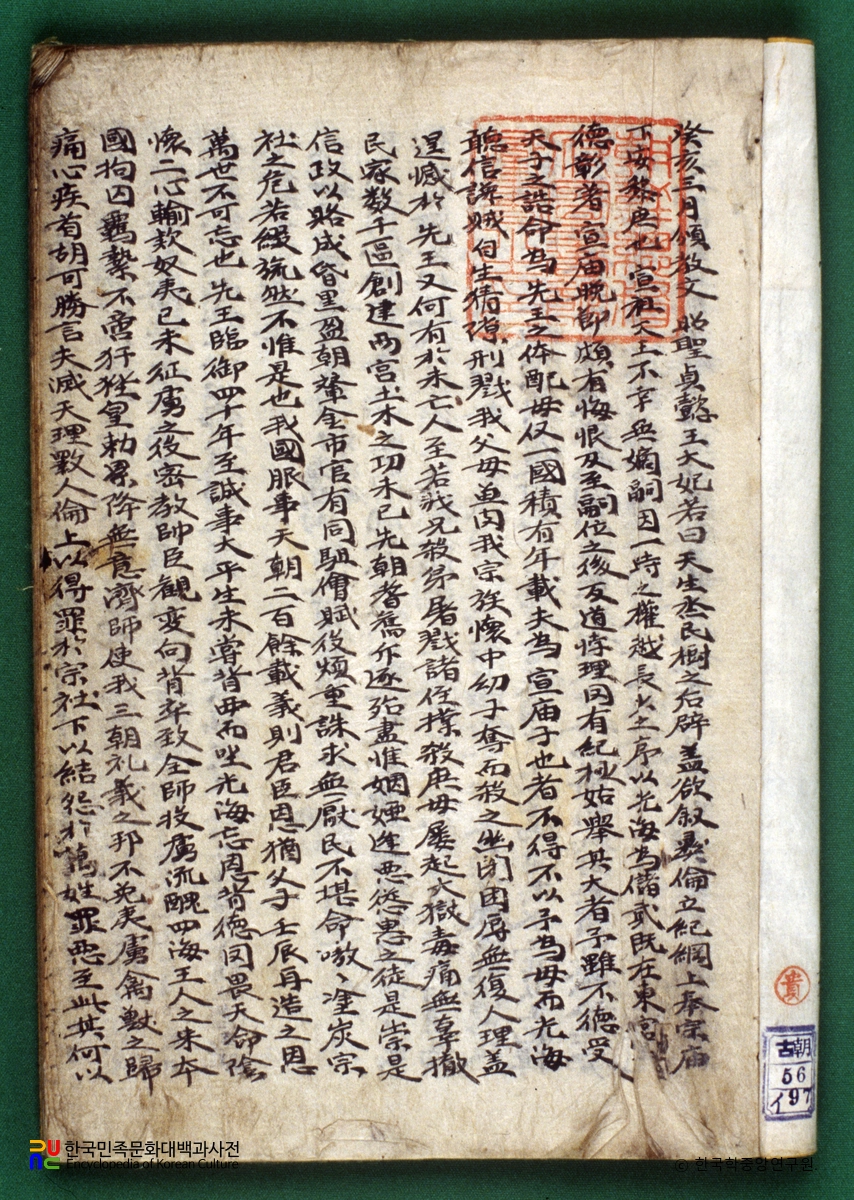 癸亥三月頒敎文 昭聖貞懿王大妃若曰天生烝民樹之后辟盖欲叙彛倫立紀綱上奉宗庙
下安黎庶也 宣祖大王不幸無嫡嗣因一時之權越長少之序以光海爲儲貳既在東宮
德彰著 宣庙晩節頗有悔恨及至嗣位之後反道悖理罔有紀極姑舉其大者予雖不德受
天子之誥命爲先王之体配母仪一國積有年載夫爲 宣庙子也者不得不以予爲母而光海
聽信讒賊自生猜隙刑戮我父母魚肉我宗族懷中幼子奪而殺之幽閉困辱無復人理盖
逞憾於 先王又何有於未亡人至若戕兄殺弟屠戮諸侄撲殺庶母屢起大獄毒痛無辜撤
民家数千區創建两宮土木之功未已先朝耆舊斥逐殆盡惟姻婭逢惡慫恿之徒是崇是
信政以賂成昏墨盈朝輦金市官有同駔儈賦役煩重誅求無厭民不堪命嗷〻塗炭宗
社之危若綴旒然不惟是也我國服事天朝二百餘載義則君臣恩猶父子壬辰再造之恩
萬世不可忘也 先王臨御四十年至誠事大平生未嘗背西而坐光海忘恩背德罔畏天命陰
懷二心輸款奴夷己未征虜之役密教帥臣觀变向背卒致全師投虜流醜四海王人之来本
國拘囚羈縶不啻犴狴皇勅累降無意濟師使我三朝礼義之邦不免夷虜禽獸之歸
痛心疾首胡可勝言夫滅天理斁人倫上以得罪於宗社下以結怨於萬姓罪惡至此其何以
貴
古朝
56
イ97
한국민족문화대백과사전
Encyclopedia of Korean Culture
© 한국학중앙연구원